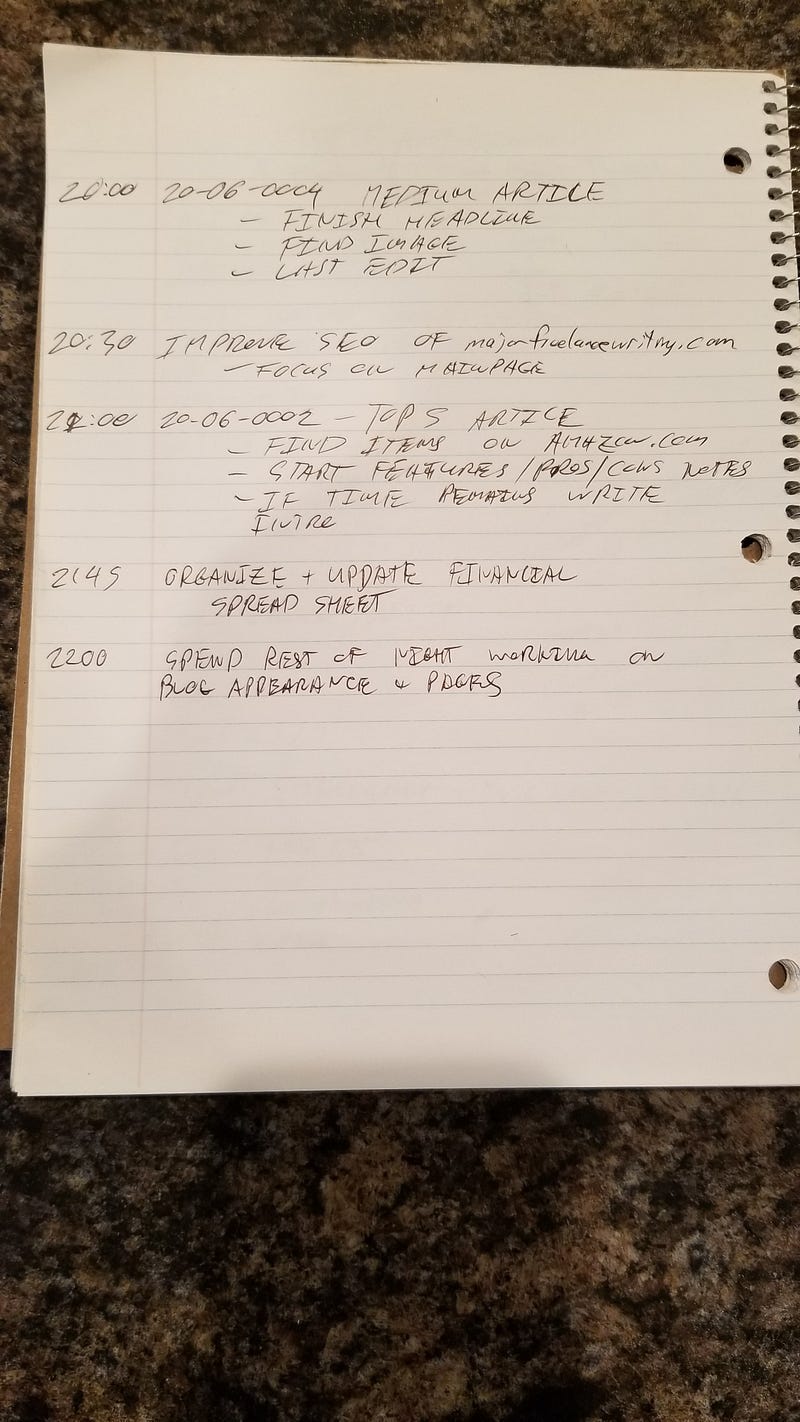 20:00 20-06-0004 MEDIUM ARTICLE
- FINISH HEADLINE
- FIND IMAGE
- LAST EDIT
20:30 IMPROVE SEO OF majorfreelancewriting.com
- FOCUS ON MAINPAGE
21:00 20-06-0002 - TOP 5 ARTICLE
- FIND ITEMS ON AMAZON.COM
- START FEATURES/PROS/CONS NOTES
- IF TIME REMAINS WRITE
INTRO
2145 ORGANIZE + UPDATE FINANCIAL
SPREAD SHEET
2200 SPEND REST OF NIGHT WORKING ON
BLOG APPEARANCE + PAGES